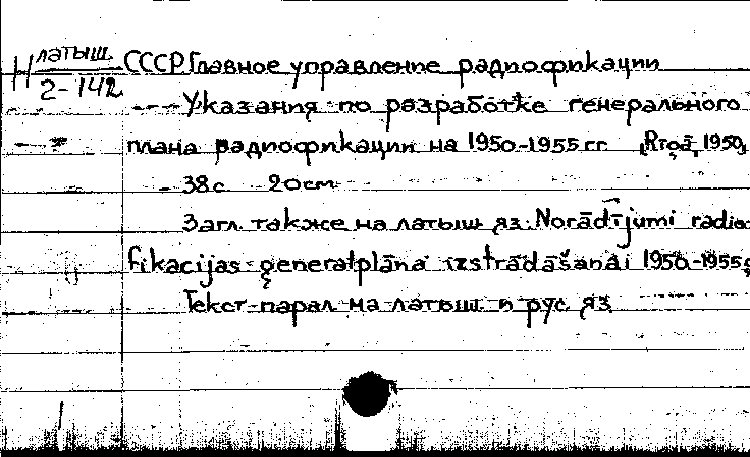 Н латыш. 2-142
СССР Главное управление радиофикации
Указания по разработке генерального
плана радиофикации на 1950-1955 гг. Rīgā, 1950,
38с 20см
Загл. также на латыш. яз: Norādījumi radio-
fikacijas ģeneralplāna izstrādāšanai 1950-1955g
Текст парал на латыш. и рус. яз.